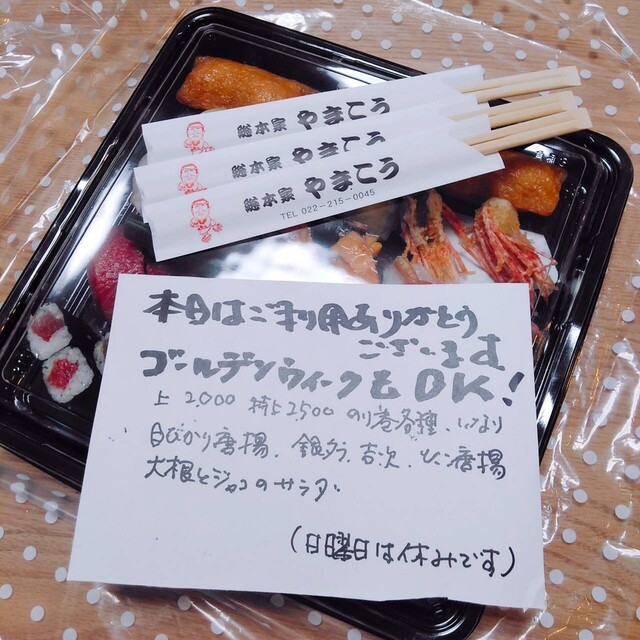 総本家 やまこう
総本家 やまこう
総本家 やまこう
TEL 022-215-0045
本日はご利用ありがとう
ございます
ゴールデンウィークもOK!
上 2,000 特上2,500 のり巻各種、いなり
目びかり唐揚、銀ダラ、吉次、たこ唐揚
大根とジャコのサラダ、
(日曜日は休みです)